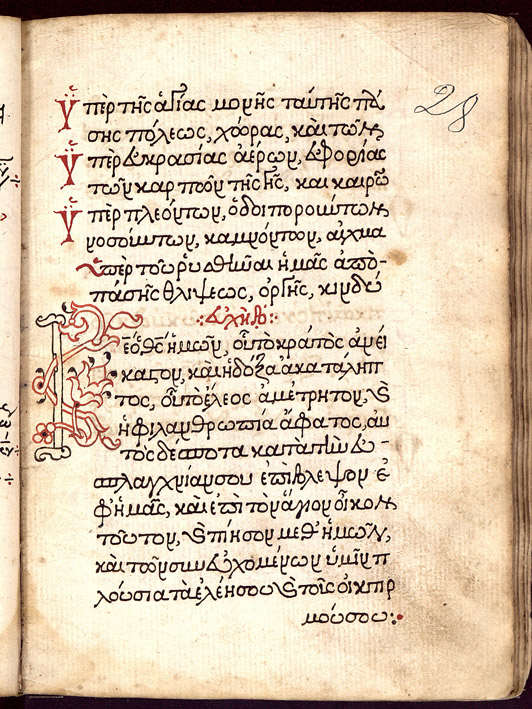 28
Ὑπὲρ τῆς ἁγίας μονῆς ταύτης πά
σης πόλεως, χώρας, καὶ τῶν
Ὑπὲρ εὐκρασίας ἀέρων, εὐφορίας
τῶν καρπῶν τῆς γῆς, καὶ καιρῶ
Ὑπὲρ πλεόντων, ὁδοιπορούντων
νοσούντων, καμνόντων, αἰχμα
Ὑπὲρ τοῦ ῥυσθῆναι ἡμᾶς ἀπὸ
πάσης θλίψεως, ὀργῆς, κινδύ
εὐχὴ
Κε ὁ θς ἡμῶν, οὗ τὸ κράτος ἀνεί
καστον, καὶ ἡ δόξα ἀκατάληπ
τος, οὗ τὸ ἔλεος ἀμέτρητον, καὶ
ἡ φιλανθρωπία ἄφατος, αὐ
τὸς δέσποτα κατὰ τὴν εὐ
σπλαγχνίαν σου ἐπίβλεψον ἐ
φ' ἡμᾶς, καὶ ἐπὶ τὸν ἅγιον οἶκον
τοῦτον, καὶ ποίησον μεθ' ἡμῶν,
καὶ τῶν συνευχομένων ἡμῖν π
λούσια τὰ ἐλέη σου καὶ τοὺς οἰκτιρ
μούς σου